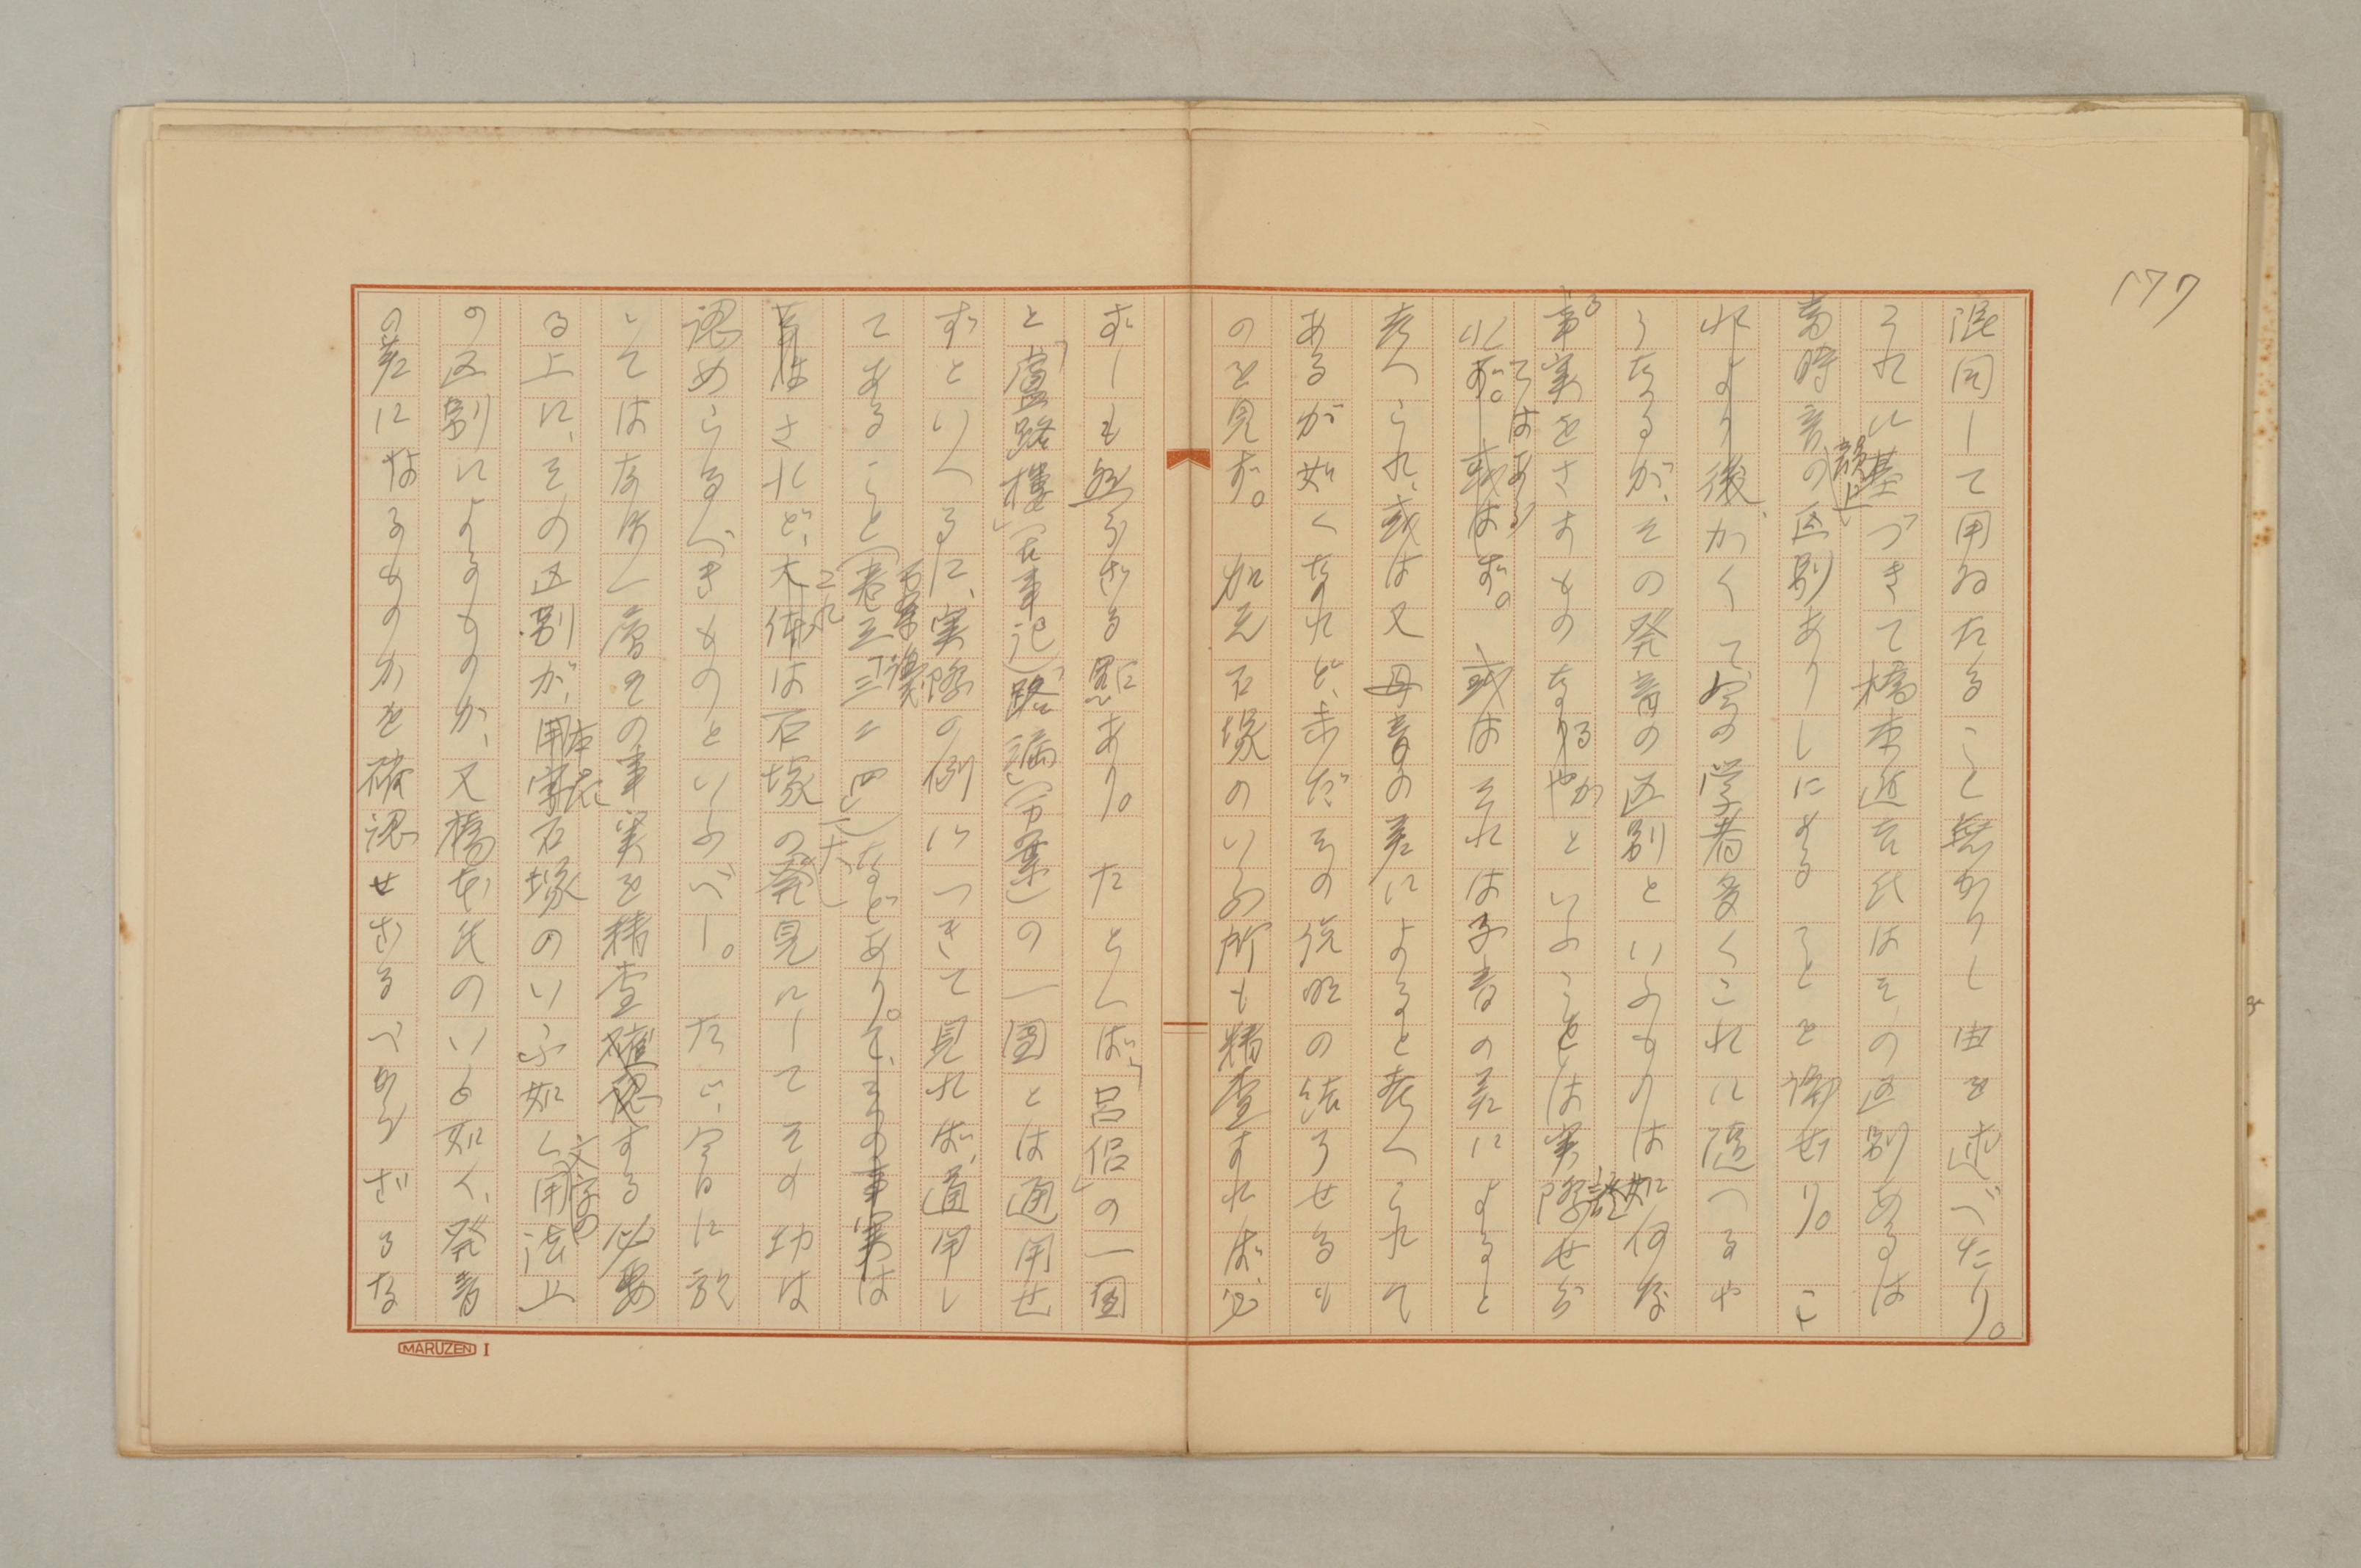 177
混同して用ゐたること無かりし由を述べたり。
それに基づきて橋本進吉氏はその区別あるは
当時音韻上の区別ありしによることを論ぜり。こ
れより後かくて字の学者多くこれに随へるや
うなるが、その発音の区別といふものは如何な
る事実をさすものなるかといふことは実証せら
れてはあらず。或はそれは子音の差によると
考へられ、或は又母音の差によると考へられて
あるが如くなれど、未だその説明の結了せるも
のを見ず。加之石塚のいふ所も精査すれば、必
ずしも然らざる点あり。たとへば、「呂侶」の一団
と「盧路樓」(古事記)「路漏」(万葉)の一団とは通用せ
ずといへるに、実際の例につきて見れば、通用し
てあること(万葉集巻三「三二四」)などあり。
されど、これ大体は石塚の発見にしてその功は
認めらるべきものといふべし。たゞ、今日に於
いてはなほ一層その事実を精査する必要
る上に、その区別が、本来石塚のいふ如く文字の用法上
の区別によるものか、又橋本氏のいふ如く、発音
の差によるものかを確認せざるべからざるな
MARUZEN I